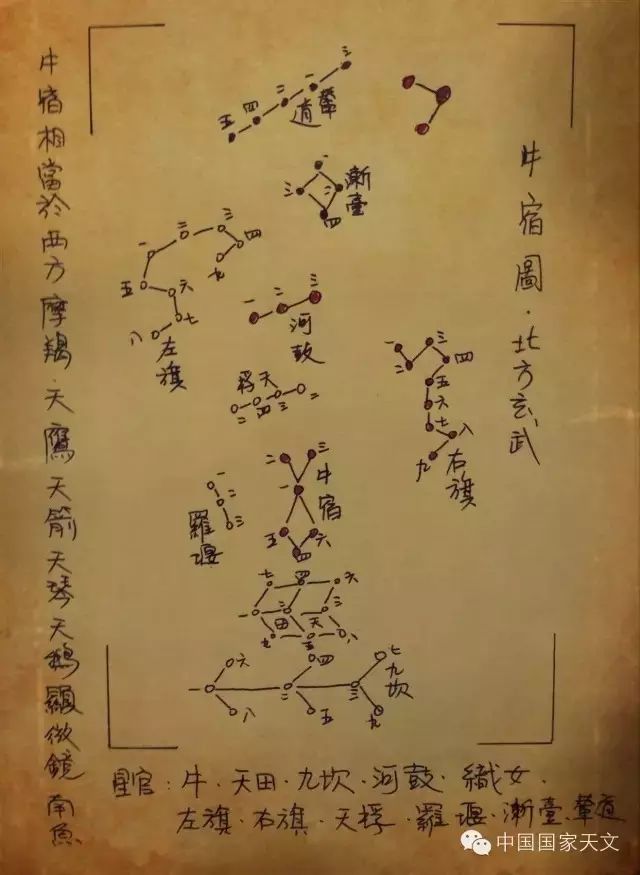 牛宿圖·北方玄武
牛宿相當於西方摩羯·天鷹天箭天琴天鵝顯微鏡南魚
三
一
二
四
五
輦道
一
三
二
四
漸臺
三
二
四
一
九
五
六
七
八
左旗
一
二
三
河鼓
天桴
一
二
三
四
五
六
七
八
九
右旗
一
二
三
羅堰
二
三
一
牛宿
五
六
四
七
四
六
一
二
三
田
天
九
五
八
六
四
七
九坎
一
二
三
八
五
九
星官：牛·天田·九坎·河鼓·織女·
左旗·右旗·天桴·羅堰·漸臺·輦道
中国国家天文